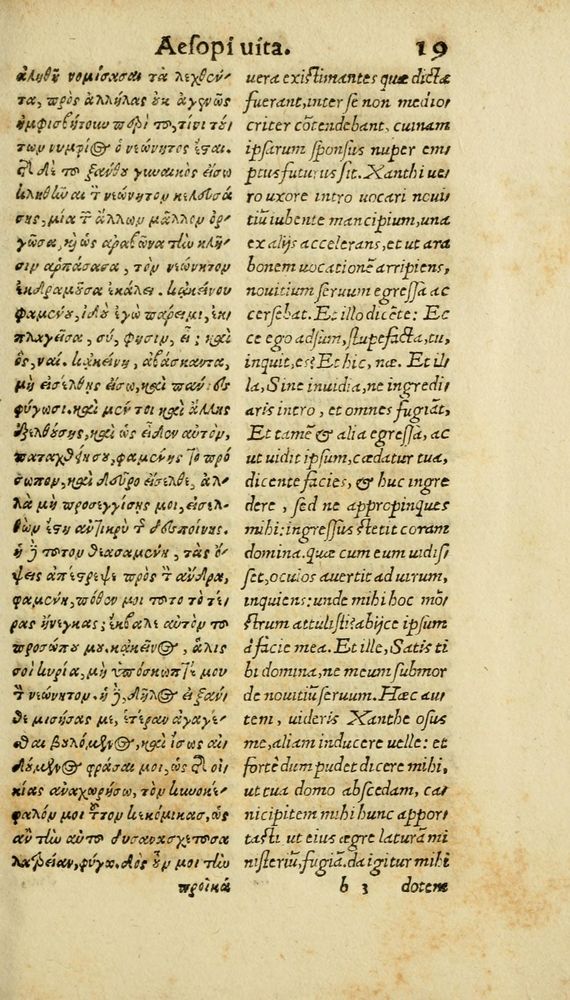 Aesopi uita. 19
ἀληθῆ νομίσασαι τὰ λεχθέν-
τα, πρὸς ἀλλήλας οὐκ ἀγεννῶς
ἠμφισβήτουν περὶ τοῦ, τίνι τού-
των νυμφίος ὁ νεώνητος ἔσται.
τῆς δὲ τοῦ ξάνθου γυναικὸς εἴσω
κληθῆναι τὸν νεώνητον κελευσά-
σης, μία τῶν ἄλλων μᾶλλον ὀρ-
γῶσα, καὶ ὡς ἀραβῶνα τὴν κλῆ-
σιν ἁρπάσασα, τὸν νεώνητον
ἐκδραμοῦσα ἐκάλει. κἀκείνου
φαμένου, ἰδοὺ ἐγὼ πάρειμι, ἐκ-
πλαγεῖσα, σύ, φησιν, εἶ; καὶ
ὅς, ναί. κἀκείνη, ἀβάσκαντα,
μὴ εἰσέλθῃς εἴσω, καὶ πάντες
φύγωσι. καὶ μέν τοι καὶ ἄλλης
ἐξελθούσης, καὶ ὡς εἶδεν αὐτόν,
παταχθήτω σου, φαμένης τὸ πρό
σωπον, καὶ δεῦρο εἴσελθε, ἀλ-
λὰ μὴ προσεγγίσῃς μοι, εἰσελ-
θὼν ἔστη ἀντικρὺ τῆς δεσποίνης.
ἡ δὲ τοῦτον θεασαμένη, τὰς ὄ-
ψεις ἀπέτρεψε πρὸς τὸν ἄνδρα,
φαμένη, πόθεν μοι τοῦτο τὸ τέ-
ρας ἤνεγκας; ἔκβαλε αὐτὸν τοῦ
προσώπου μου. κἀκεῖνος, ἅλις
σοι κυρία, μὴ ὑπόσκωπτέ μου
τὸν νεώνητον. ἡ δὲ, δῆλος εἶ ξάν-
θε μισήσας με, ἑτέραν ἀγαγέ-
σθαι βουλόμενος, καὶ ἴσως αἰ-
δούμενος φράσαι μοι, ὡς τῆς οἰ-
κίας ἀναχωρήσω, τὸν κυνοκέ-
φαλόν μοι τοῦτον κεκόμικας, ὡς
ἂν τὴν αὐτοῦ δυσανασχετοῦσα
λατρείαν, φύγω. δὸς οὖν μοι τὴν
προῖκά
uera existimantes quæ dicta
fuerant, inter se non medio
criter cōtendebant, cuinam
ipsarum sponsus nuper em
ptus futurus sit. Xanthi ue
ro uxore intro uocari noui
tiũ iubente mancipium, una
ex alijs accelerans, et ut ara
bonem uocationē arripiens,
nouitium seruum egressa ac
cersebat. Et illo dicēte: Ec
ce ego adsum, stupefacta, tu,
inquit, es? Et hic, næ. Et il
la, Sine inuidia, ne ingredi
aris intro, et omnes fugiāt,
Et tamē & alia egressa, ac
ut uidit ipsum, cædatur tua,
dicente facies, & huc ingre
dere, sed ne appropinques
mihi: ingressus stetit coram
domina. quæ cum eum uidis
set, oculos auertit ad uirum,
inquiens: unde mihi hoc mō
strum attulisti? abijce ipsum
à facie mea. Et ille, Satis ti
bi domina, ne meum submor
de nouitiũ seruum. Hæc au
tem, uideris Xanthe osus
me, aliam inducere uelle: et
fortè dum pudet dicere mihi,
ut tua domo abscedam, ca
nicipitem mihi hunc appor
tasti ut eius ægre laturā mi
nisteriũ, fugiā. da igitur mihi
b 3 dotem